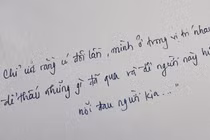 Chỉ ước rằng ai đôi lần, mình ở trong vị trí nhau
để thấu những gì đã qua ra để người này hi
nỗi đau người kia..."